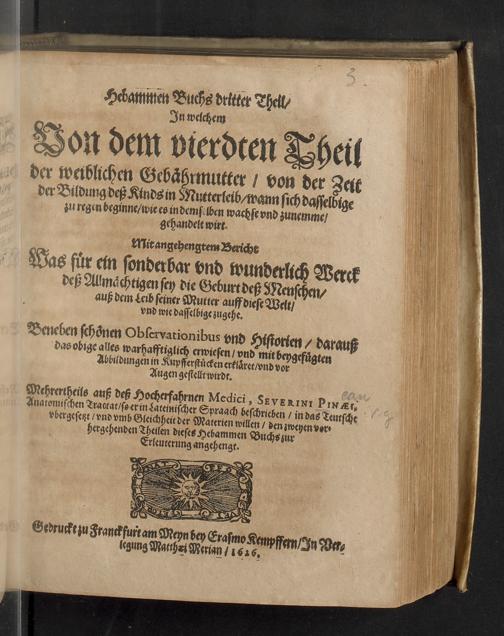 3.
Hebammen Buchs dritter Theil/
In welchem
Von dem vierdten Theil
der weiblichen Gebährmutter / von der Zeit
der Bildung deß Kinds in Mutterleib / wann sich dasselbige
zu regen beginne / wie es in demselben wachse vnd zunemme /
gehandelt wirt.
Mit angehengtem Bericht
Was für ein sonderbar vnd wunderlich Werck
deß Allmächtigen sey die Geburt deß Menschen /
auß dem Leib seiner Mutter auff diese Welt /
vnd wie dasselbige zugehe.
Beneben schönen Observationibus vnd Historien / darauß
das obige alles warhafftiglich erwiesen / vnd mit beygefügten
Abbildungen in Kupfferstücken erkläret / vnd vor
Augen gestellt wirdt.
Mehrertheils auß deß Hocherfahrnen Medici, SEVERINI PINÆI,
Anatomischen Tractat / so er in Lateinischer Spraach beschrieben / in das Teutsche
vbergesetzt / vnd vmb Gleichheit der Materien willen / den zweyen vor-
hergehenden Theilen dieses Hebammen Buchs zur
Erleuterung angehengt.
Gedruckt zu Franckfurt am Meyn bey Erasmo Kempffern / In Ver-
legung Matthæi Merian / 1626.